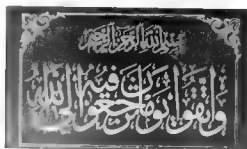 بسم الله الرحمن الرحيم
واتقوا يوما ترجعون فيه الى الله